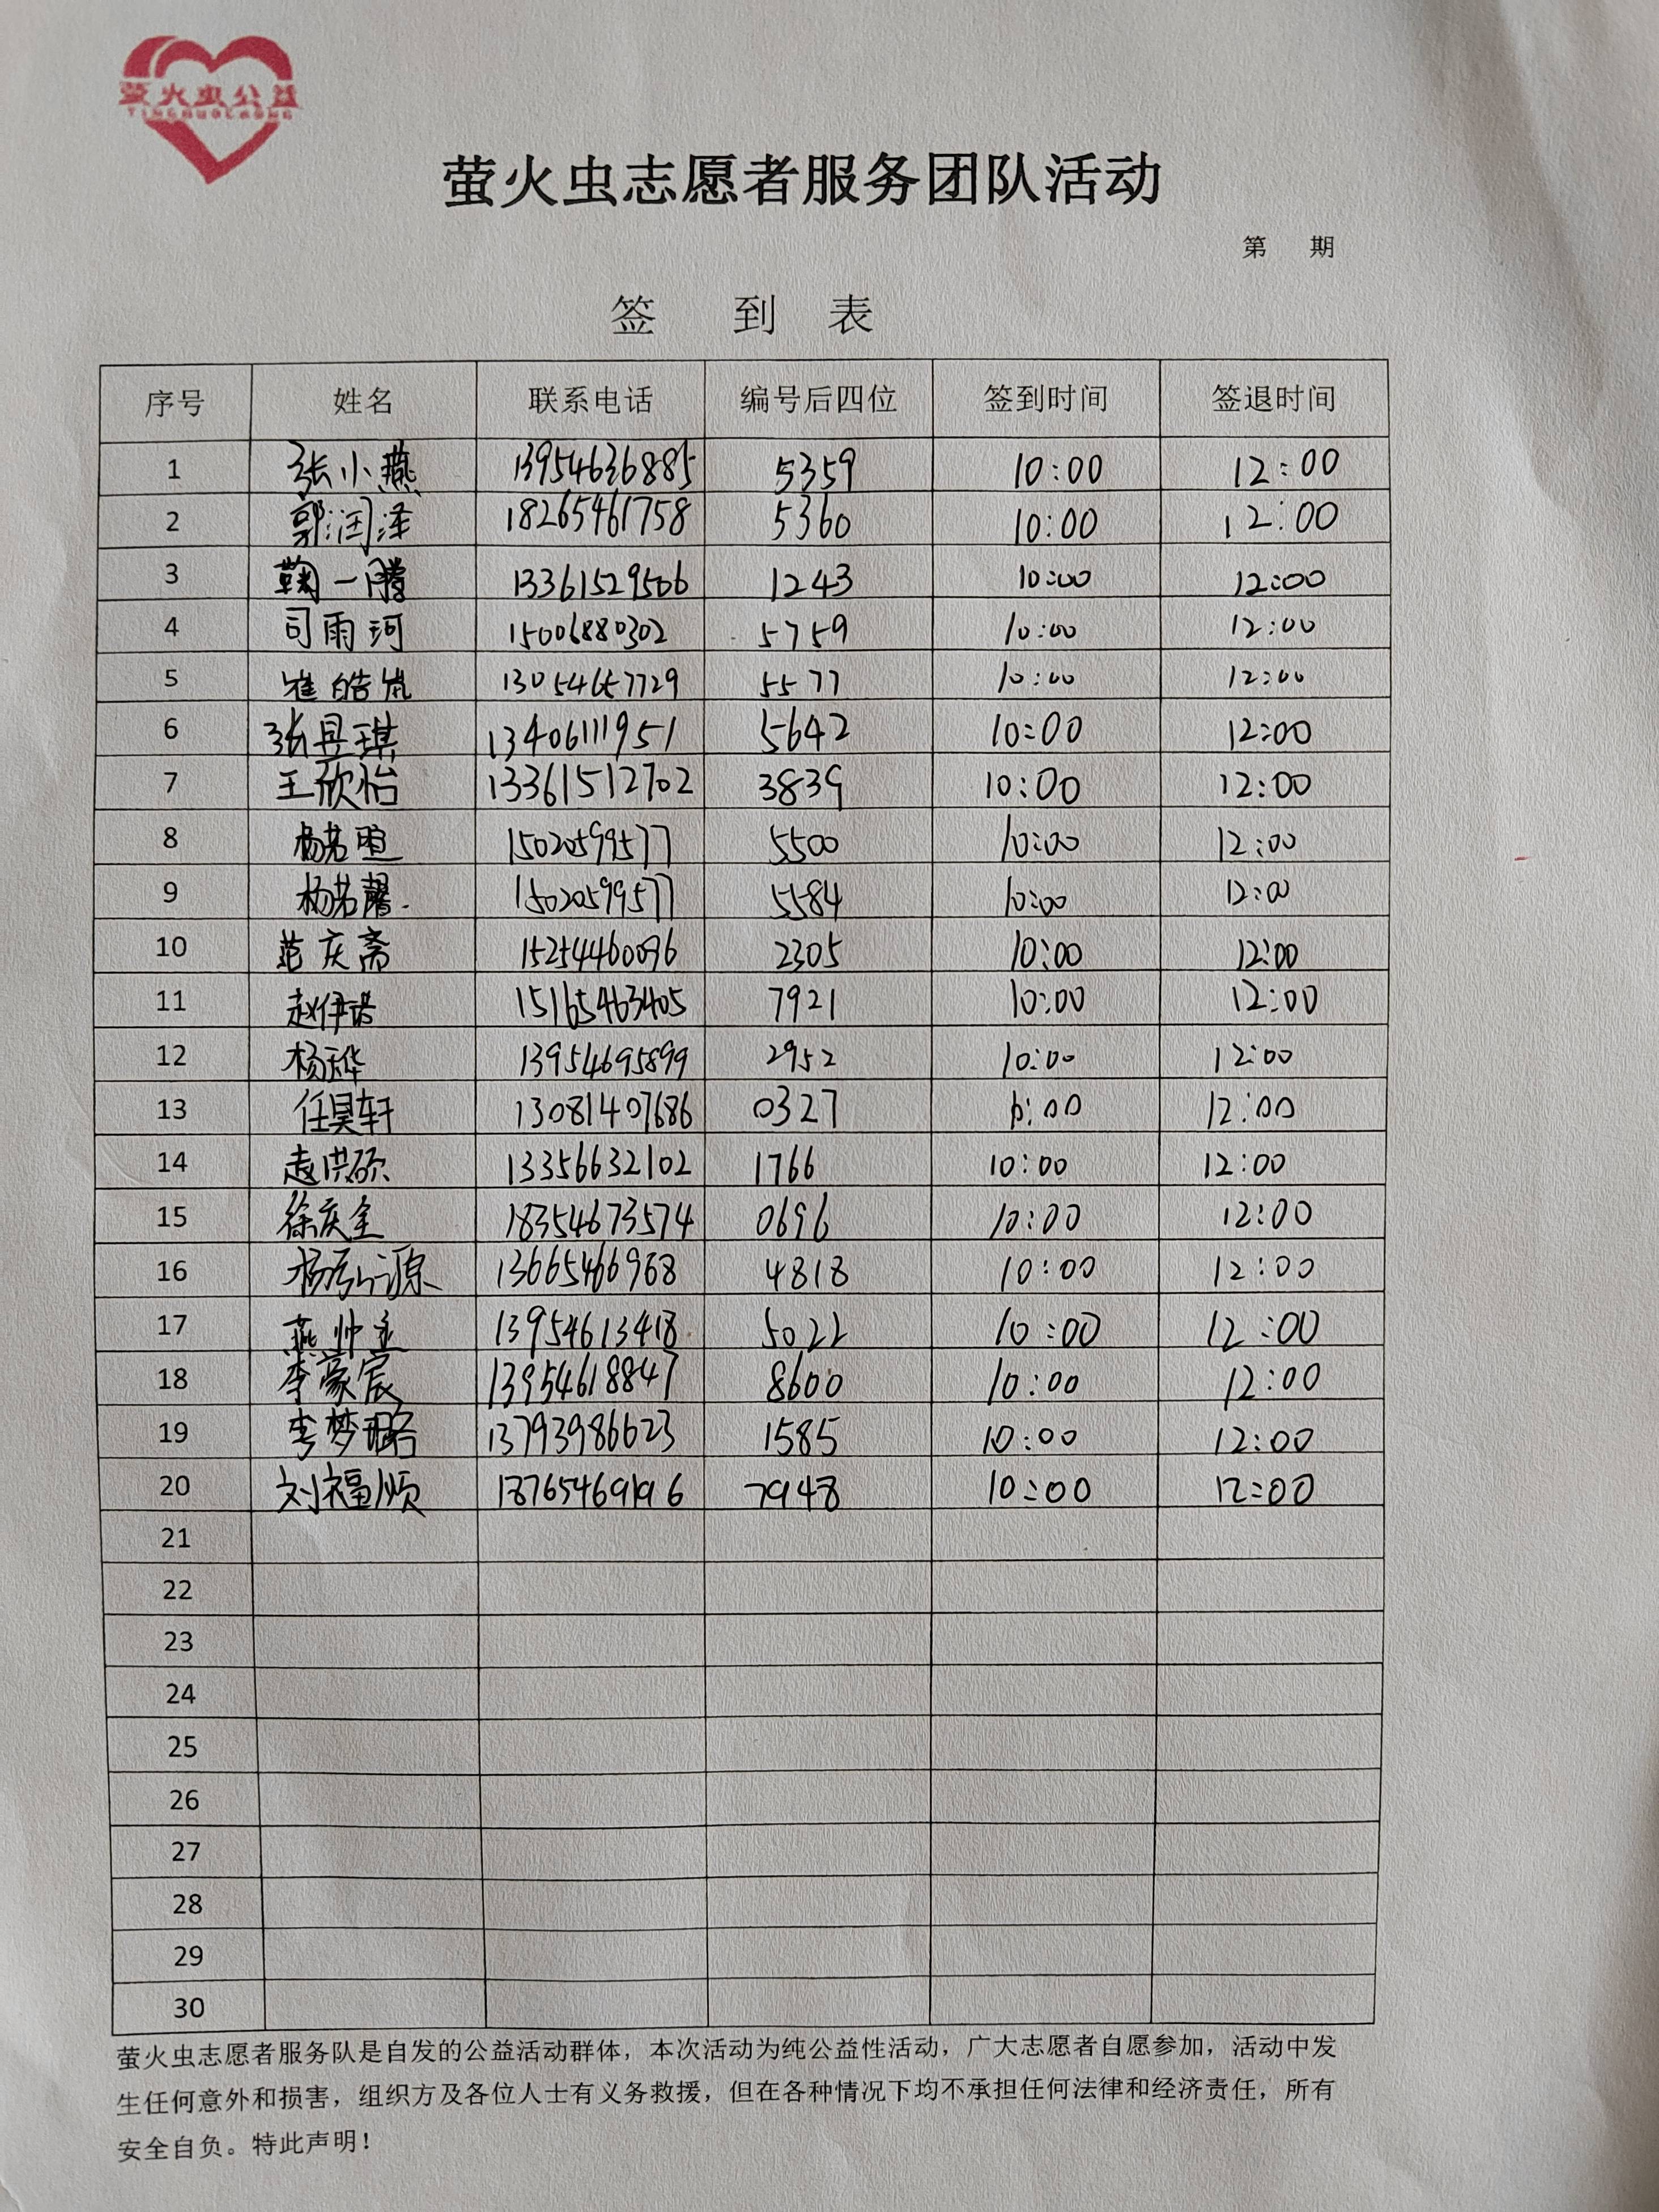 萤火虫公益
YINGHUOCHONG
萤火虫志愿者服务团队活动
第 期
签 到 表
序号 姓名 联系电话 编号后四位 签到时间 签退时间
1 张小燕 13954636885 5359 10:00 12:00
2 郭润泽 18265461758 5360 10:00 12:00
3 鞠一腾 13361529506 1243 10:00 12:00
4 司雨河 15006880302 5759 10:00 12:00
5 崔皓岚 13054657729 5577 10:00 12:00
6 张丹琪 13406111951 5642 10:00 12:00
7 王欣怡 13361512702 3839 10:00 12:00
8 杨若暄 15020599577 5500 10:00 12:00
9 杨若馨 15020599577 5584 10:00 12:00
10 范庆斋 15254460096 2305 10:00 12:00
11 赵伊诺 15165463405 7921 10:00 12:00
12 13954695899 2952 10:00 12:00
13 任昊轩 13081407686 0327 10:00 12:00
14 赵洪硕 13356632102 1766 10:00 12:00
15 徐庆全 18354673574 0696 10:00 12:00
16 杨弘源 13665466968 4818 10:00 12:00
17 燕帅 13954613418 5022 10:00 12:00
18 李豪宸 13954618847 8600 10:00 12:00
19 李梦璐 13793986623 1585 10:00 12:00
20 刘福顺 18765469196 7948 10:00 12:00
21
22
23
24
25
26
27
28
29
30
萤火虫志愿者服务队是自发的公益活动群体，本次活动为纯公益性活动，广大志愿者自愿参加，活动中发
生任何意外和损害，组织方及各位人士有义务救援，但在各种情况下均不承担任何法律和经济责任，所有
安全自负。特此声明！